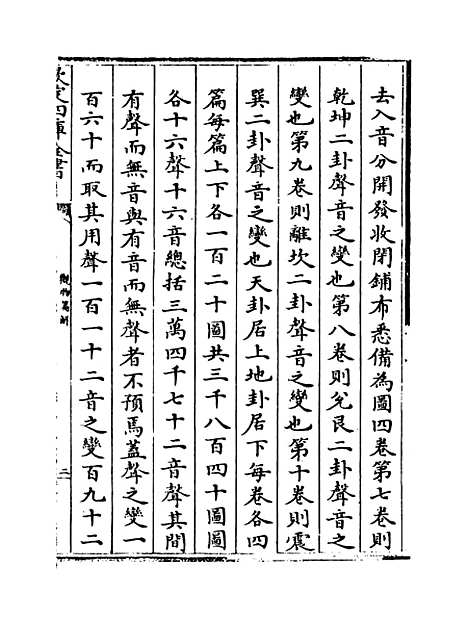 去入音分開發收閉鋪布悉備為圖四卷第七卷則
乾坤二卦聲音之變也第八卷則兊艮二卦聲音之
變也第九卷則離坎二卦聲音之變也第十卷則震
巽二卦聲音之變也天卦居上地卦居下每卷各四
篇每篇上下各一百二十圖共三千八百四十圖圖
各十六聲十六音總括三萬四千七十二音聲其間
有聲而無音與有音而無聲者不預焉蓋聲之變一
百六十而取其用聲一百一十二音之變百九十二
欽定四庫全書
觀物篇解
二